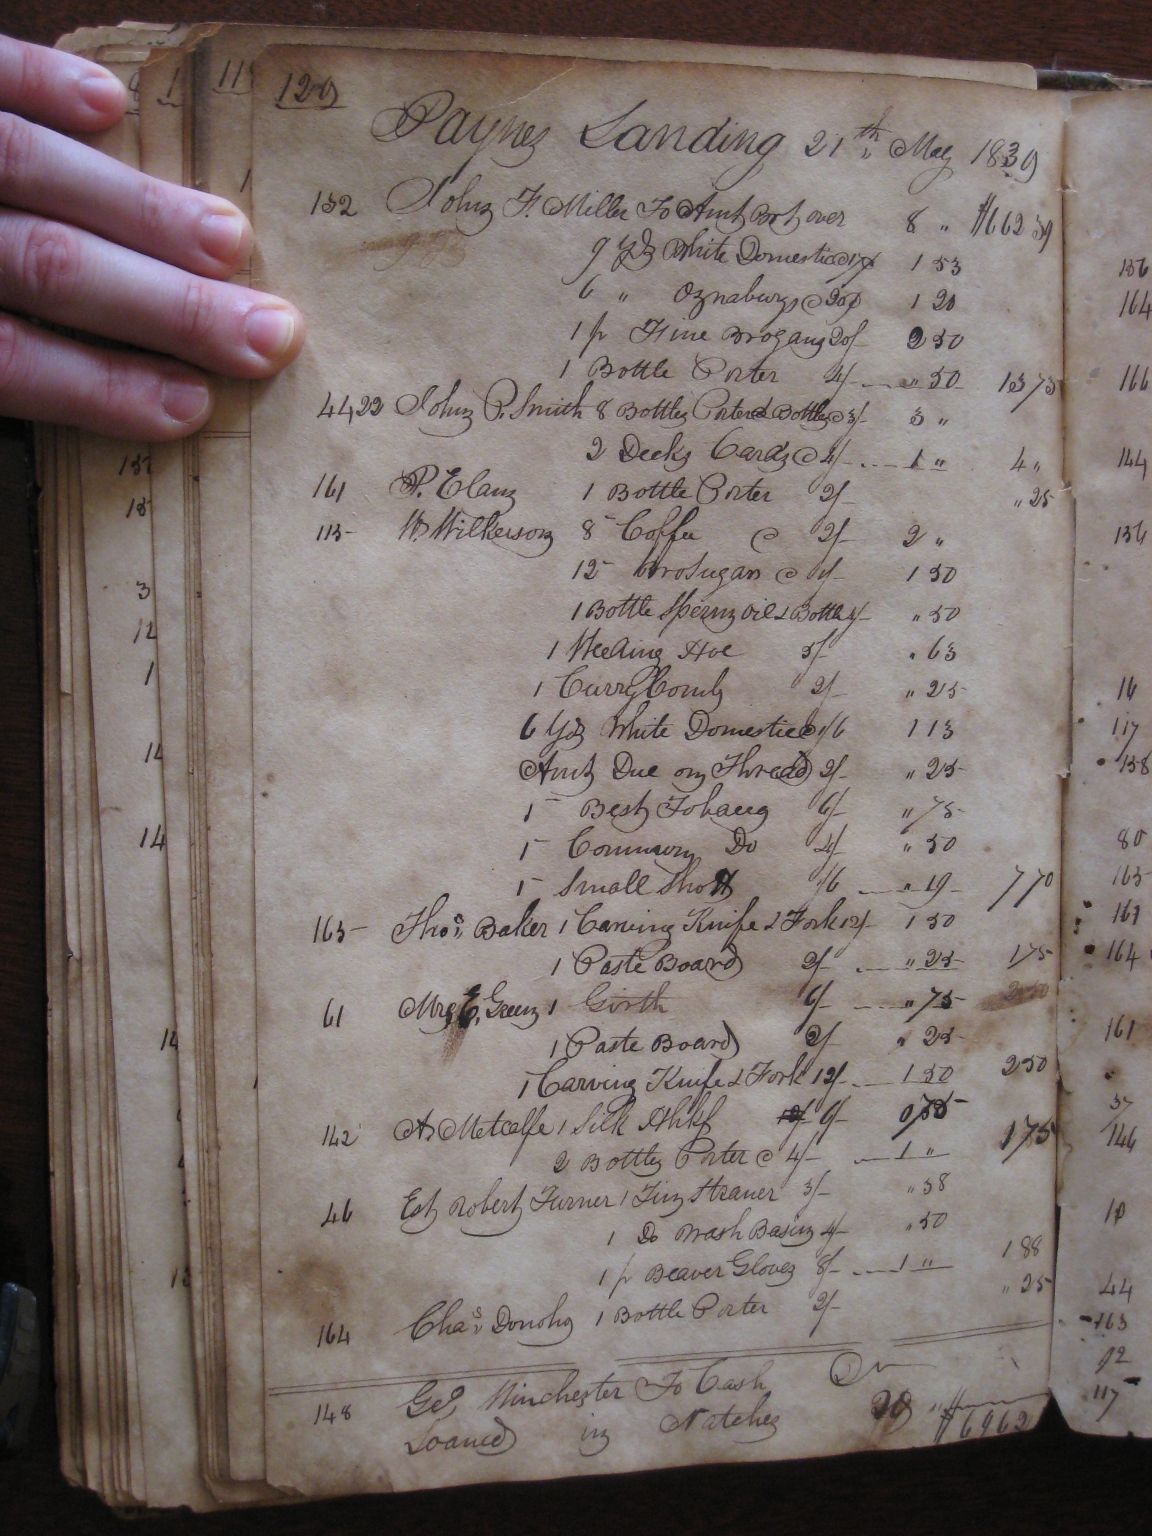 120
Paynes Landing 21th May 1839
152 John F. Miller To Amt Brt over 8 " $662 39
9 Yds White Domestic @ 17¢ 1 53
6 " Oznaburgs @ 20¢ 1 20
1 pr Fine Brogans 20/- 2 50
1 Bottle Porter 4/- " 50 15 73
4422 John P. Smith 8 Bottles Porter & Bottles @ 3/- 3 "
2 Decks Cards @ 4/- 1 " 4 "
161 P. 1 Bottle Porter 2/- " 25
115 W. Wilkerson 8 Coffee @ 2/- 2 "
12 Bro Sugar @ 1/- 1 50
1 Bottle Sperm Oil & Bottle 4/- " 50
1 Weeding Hoe 5/- " 63
1 Curry Comb 2/- " 25
6 Yds White Domestic @ 1/6 1 13
Amt Due on Thread 2/- " 25
1 Best Tobacco 6/- " 75
1 Common Do 4/- " 50
1 Small Shott 1/6 " 19 7 70
165 Thos. Baker 1 Carving Knife & Fork 12/- 1 50
1 Paste Board 2/- " 25 1 75
61 Mrs E. Green 1 Girth 6/- " 75
1 Paste Board 2/- " 25
1 Carving Knife & Fork 12/- 1 50 2 50
142 A. Metcalfe 1 Silk Hhkf 6/- 75
2 Bottles Porter @ 4/- 1 " 1 75
46 Est Robert Turner 1 Tin Strainer 3/- " 38
1 Do Wash Basin 4/- " 50
1 pr Beaver Gloves 8/- 1 " 1 88
164 Chas. Donoho 1 Bottle Porter 2/- " 25
148 Geo. Winchester To Cash Dr
Loaned in Natchez 20 " $6962